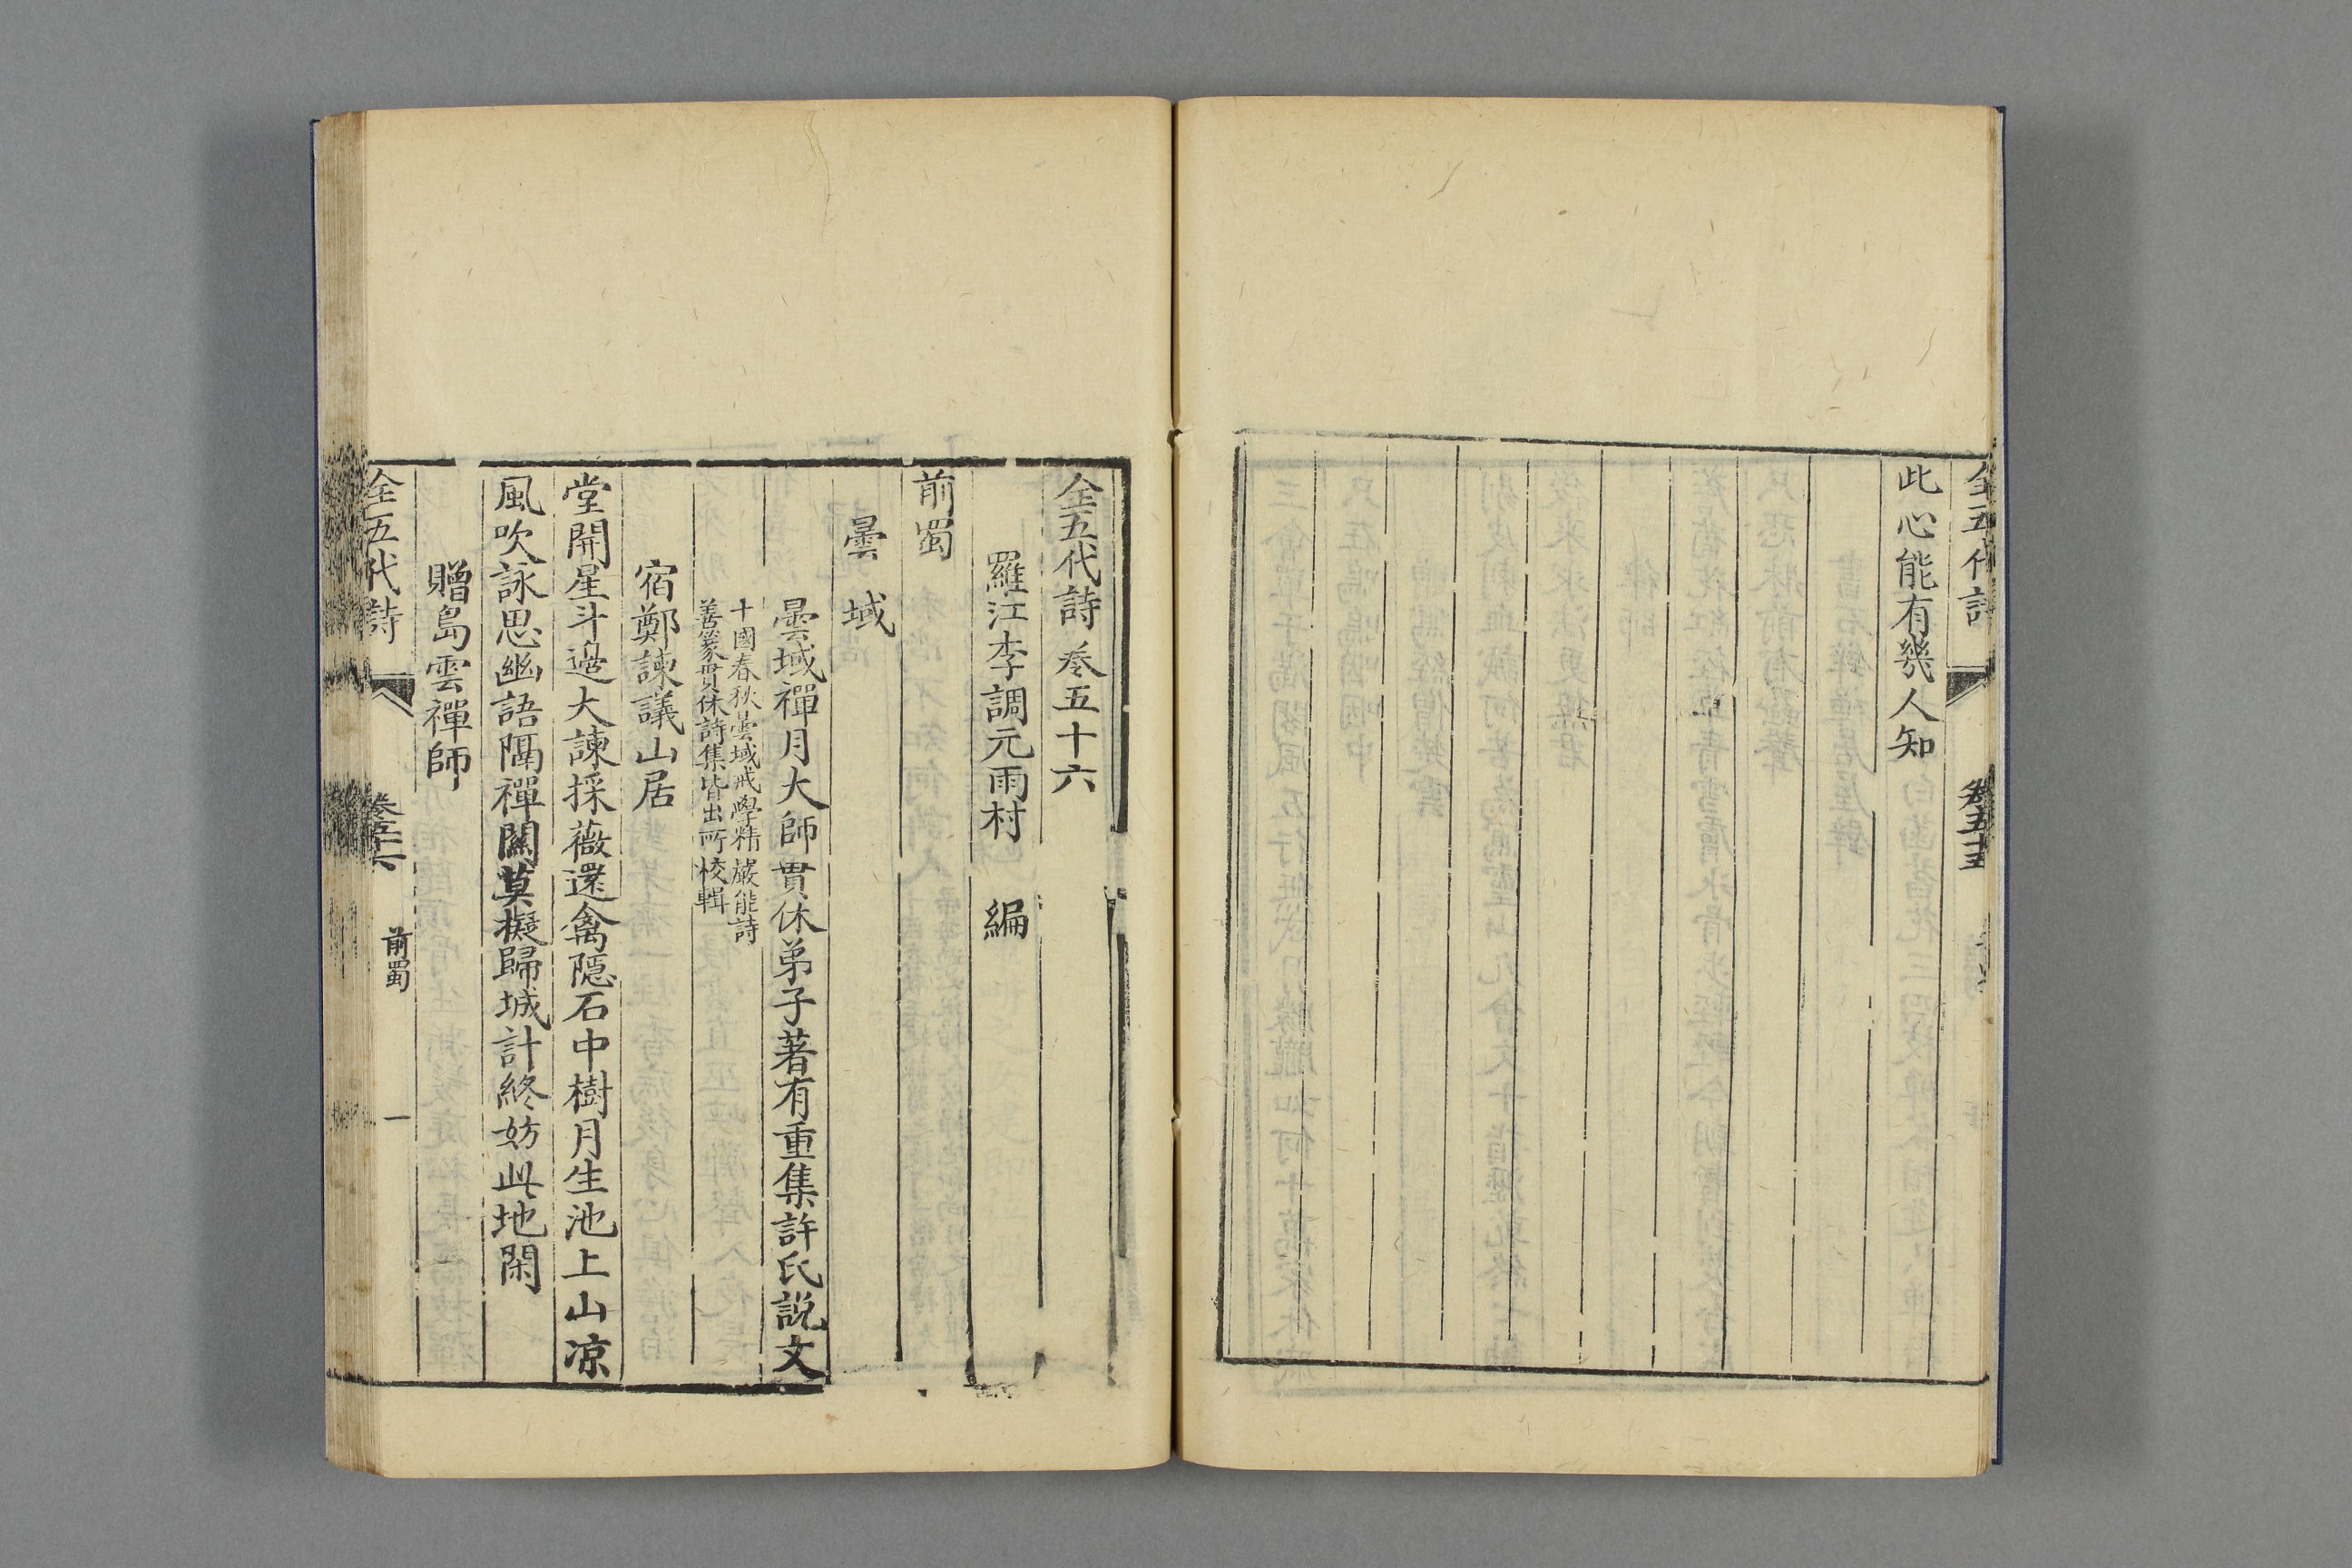 全五代詩
卷五十五
此心能有幾人知
全五代詩卷五十六
羅江李調元雨村　編
前蜀
曇域
曇域禪月大師貫休弟子著有重集許氏說文
十國春秋曇域戒學精嚴能詩
善篆貫休詩集皆出所校輯
宿鄭諫議山居
堂開星斗邉大諫採薇還禽隱石中樹月生池上山凉
風吹詠思幽語隔禪關莫擬歸城計終妨此地閑
贈島雲禪師
全五代詩
卷五十六
前蜀
一